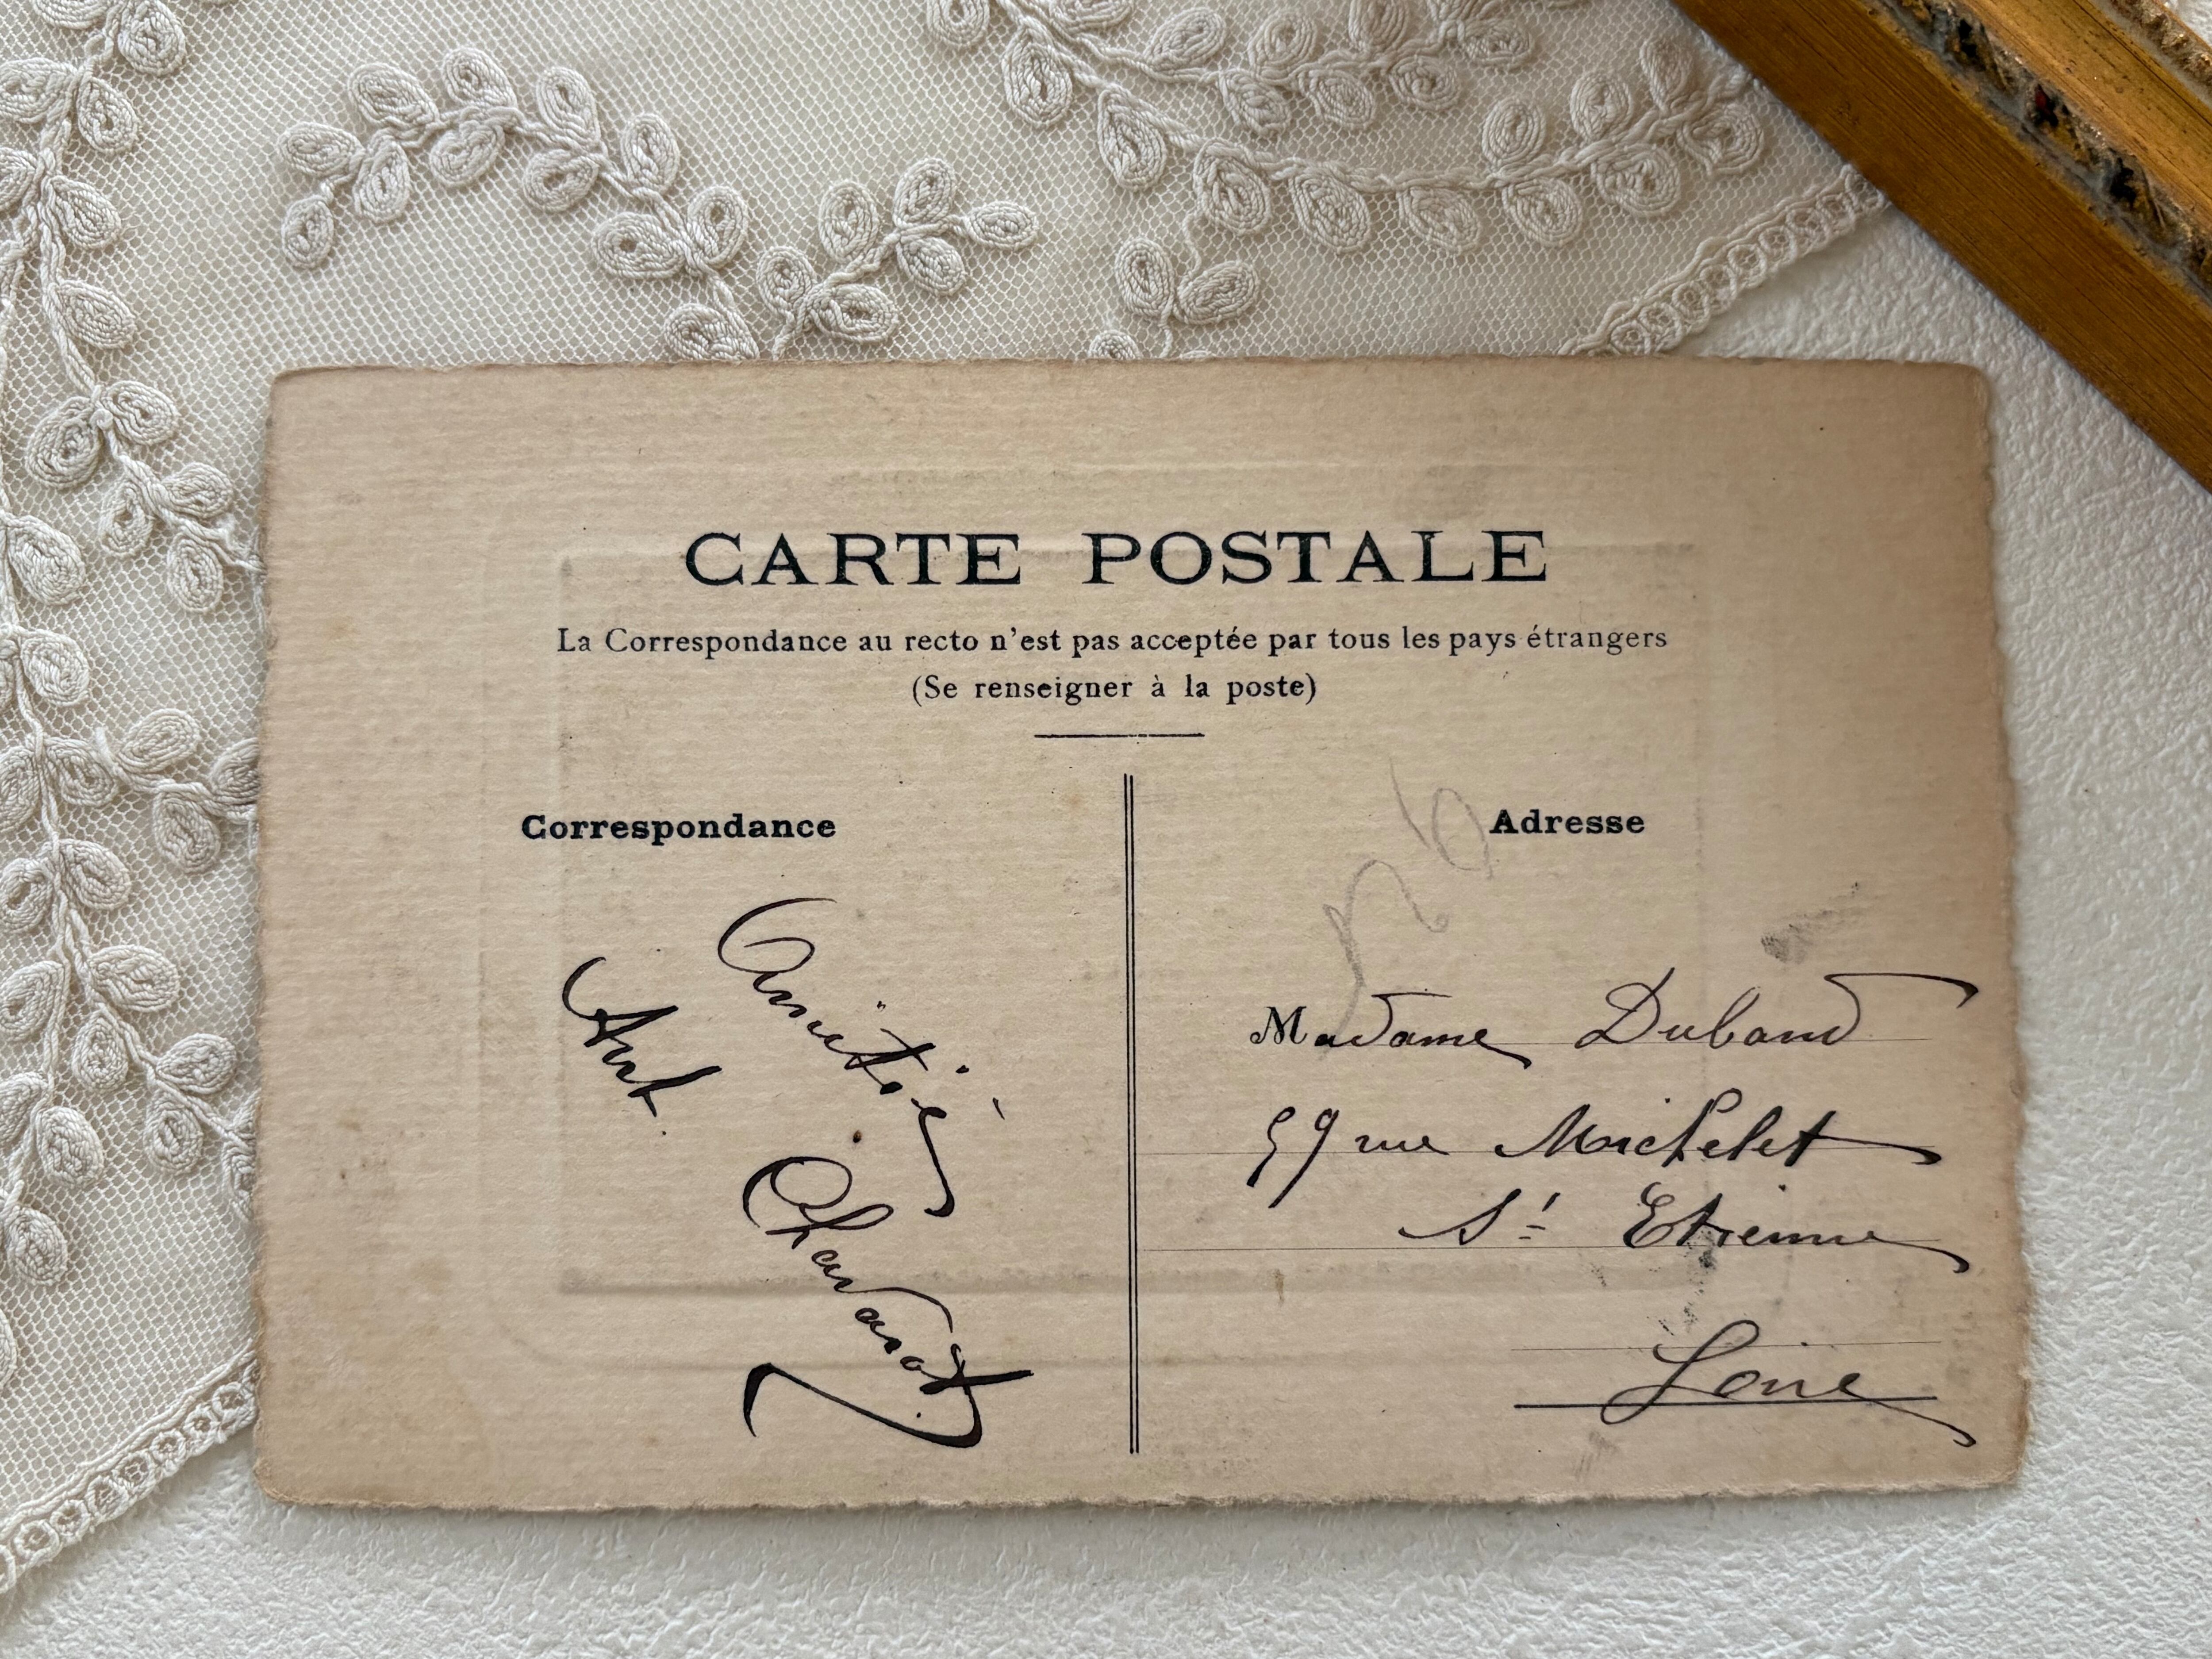 CARTE POSTALE
La Correspondance au recto n'est pas acceptée par tous les pays étrangers
(Se renseigner à la poste)
Correspondance
Amitiés
Ant.
Adresse
Madame Duband
59 rue Michelet
St Etienne
Loire